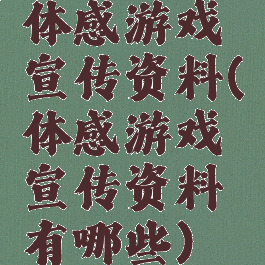 体感游戏
宣传资料(
体感游戏
宣传资料
有哪些)